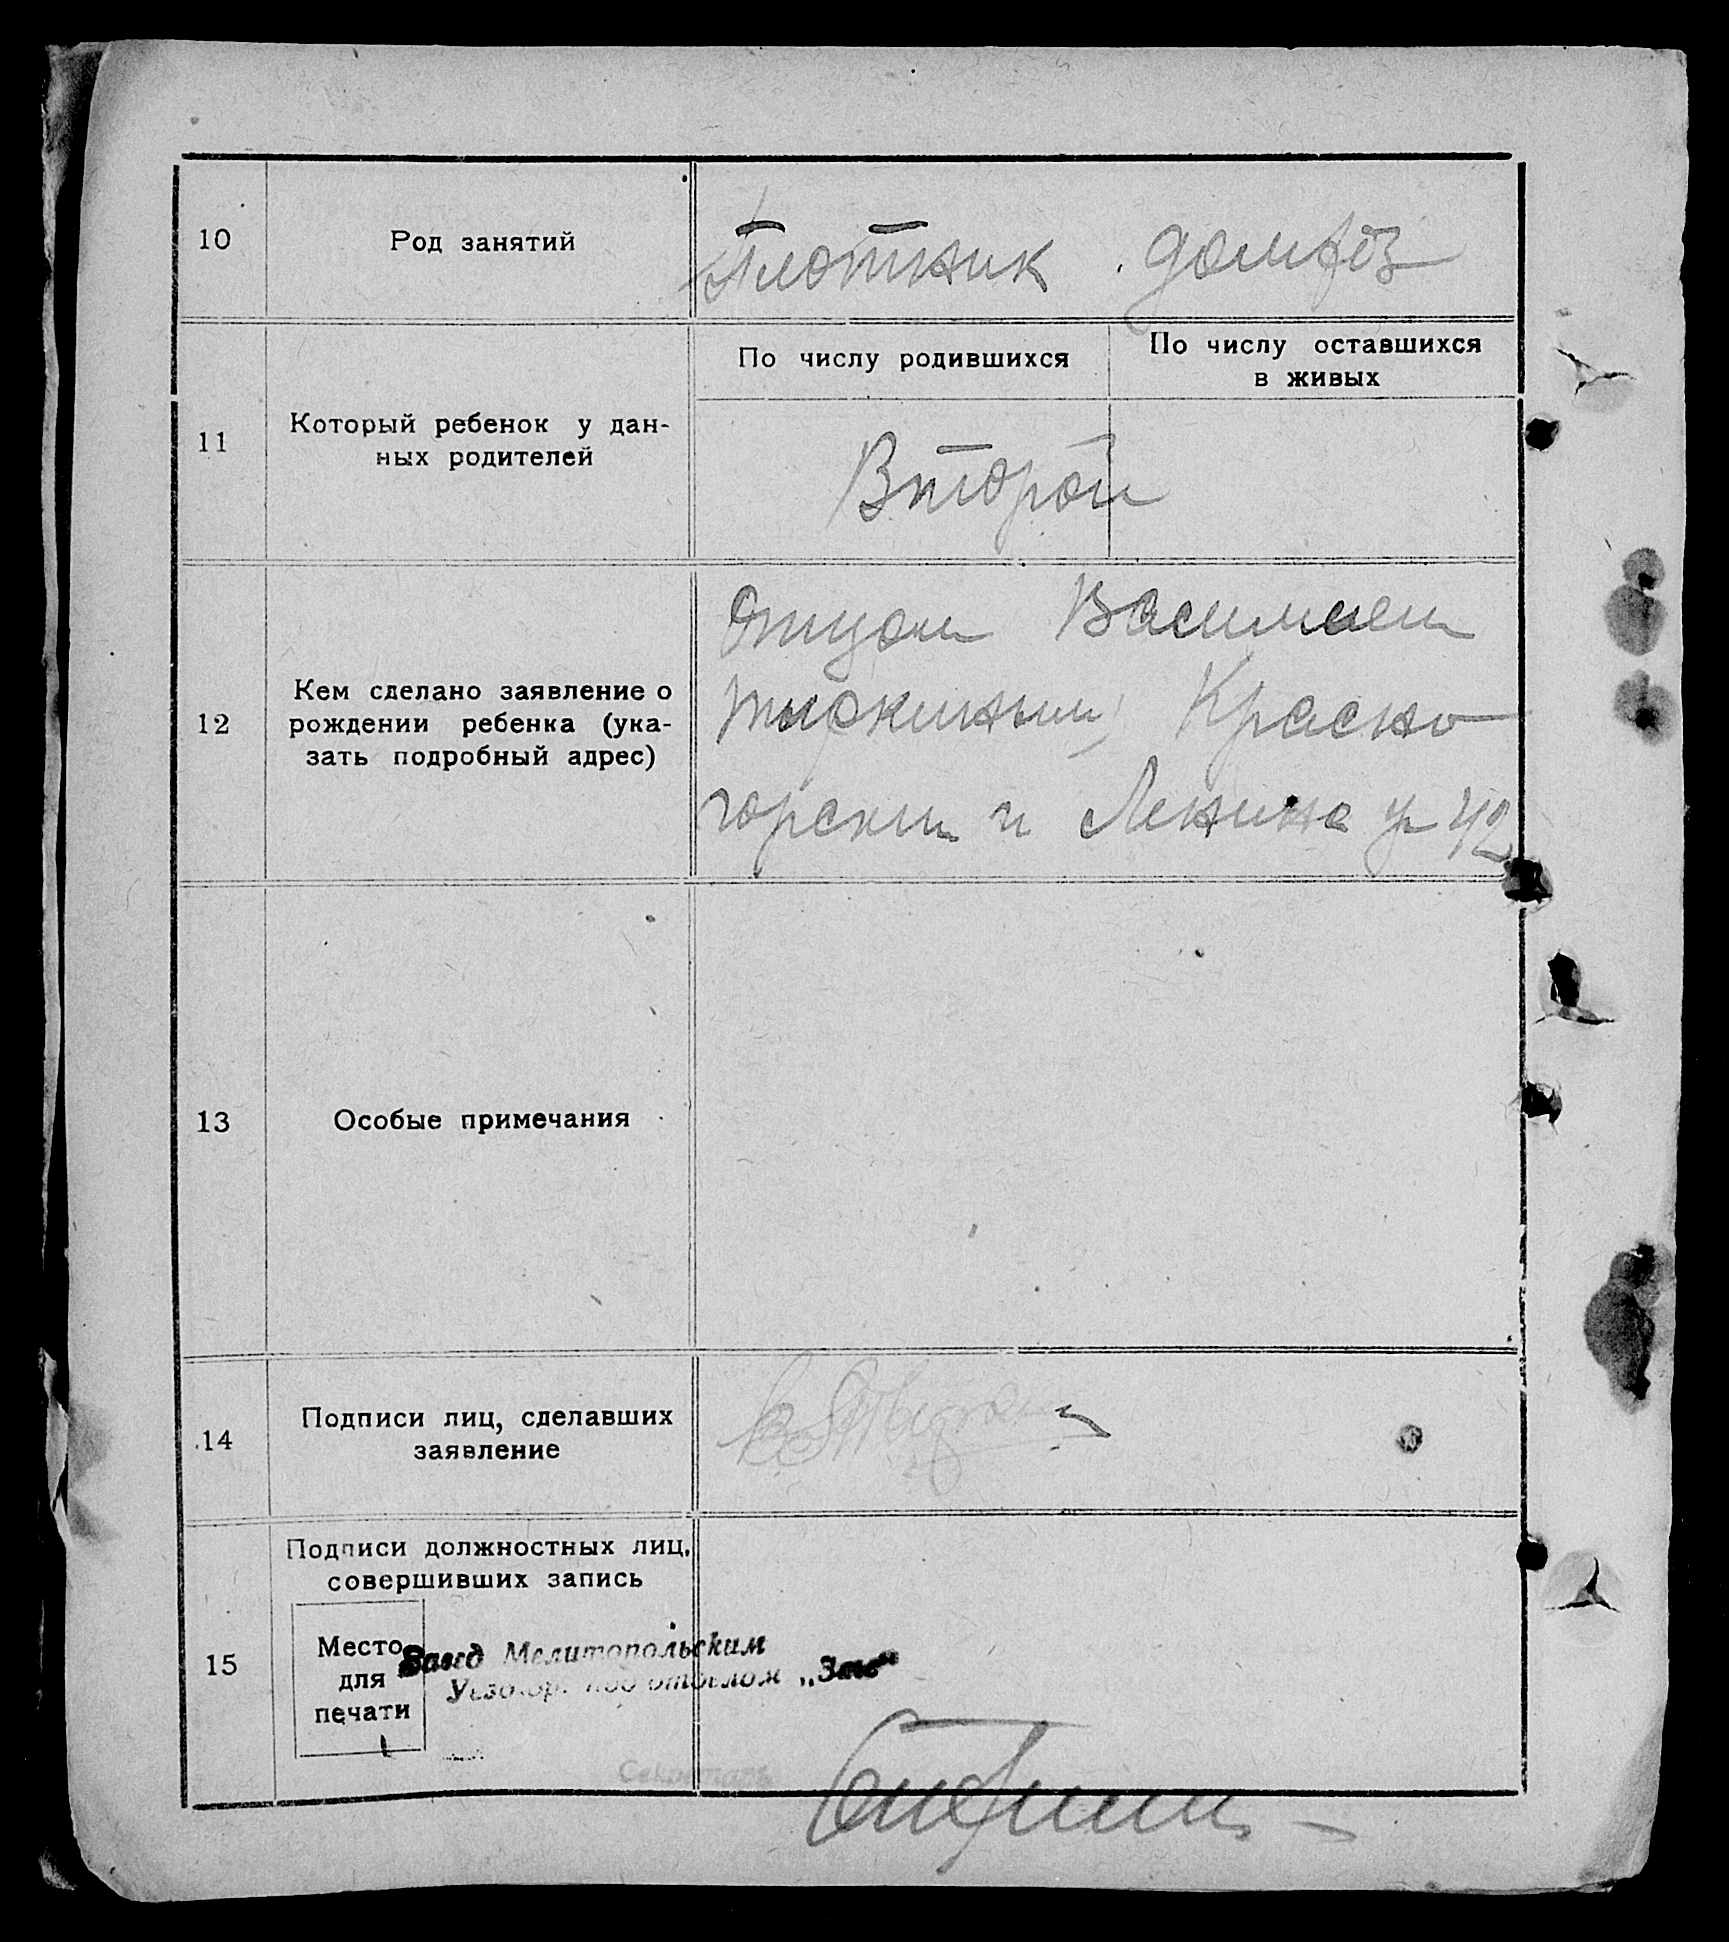 10 Род занятий Плотник
11 Который ребенок у дан-
ных родителей
По числу родившихся
По числу оставшихся
в живых
Второй
12 Кем сделано заявление о
рождении ребенка (ука-
зать подробный адрес)
Отцом Василием
Красно
горским и Ленина 42
13 Особые примечания
14 Подписи лиц, сделавших
заявление
15 Подписи должностных лиц,
совершивших запись
Место
для
печати
Завед Мелитопольским
под отделом „Загс“
Секретарь